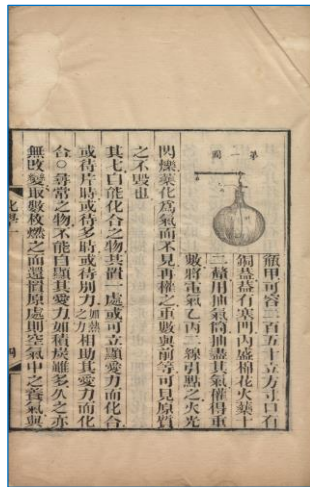 第一圖
瓶甲可容二百五十立方寸口有
銅蓋蓋有塞門內盛棉花火藥十
二釐用抽氣筒抽盡其氣權得重
數將電氣乙丙二線引點之火光
閃爍藥化為氣而不見再權之重數與前等可見原質
之不毀也
其七自能化合之物其置一處或可立顯愛力而化合
或待片時或待多時或待別力如熱力之力相助其愛力而化
合○尋常之物不能自顯其愛力如積炭雖多久之亦
無改變取數枚燃之而還置原處則空氣中之養氣與
化學一
四